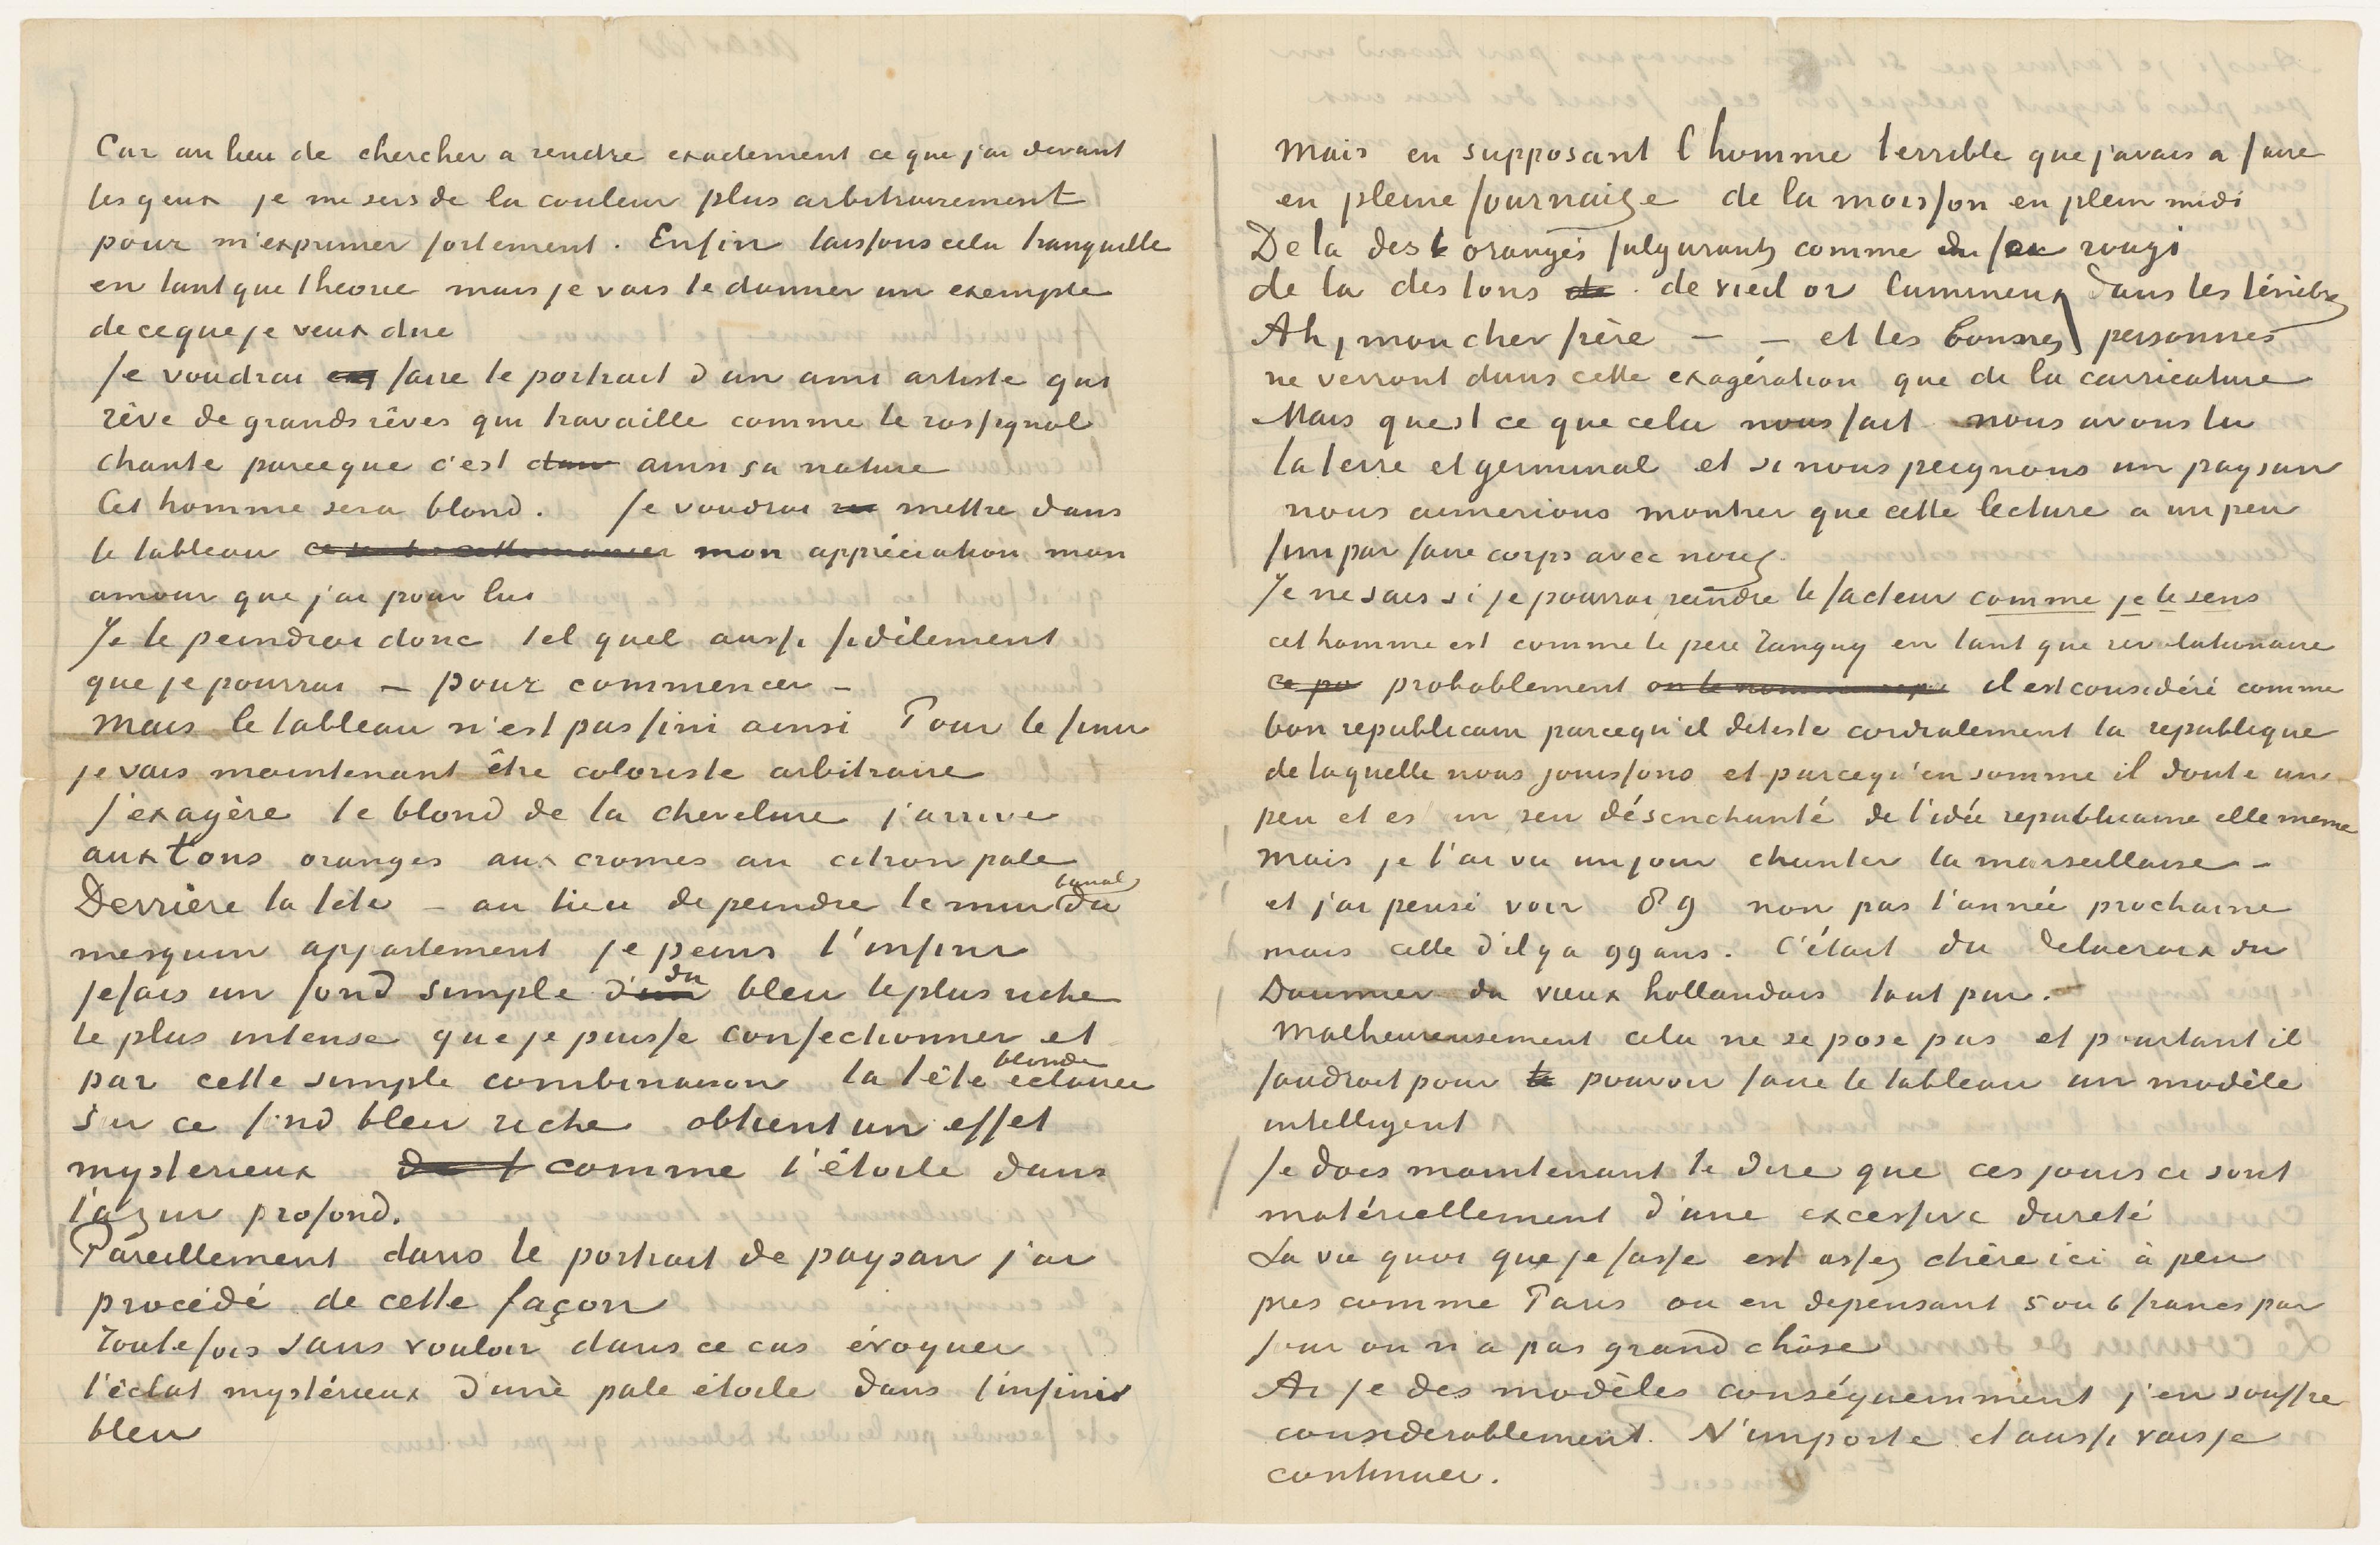 Car au lieu de chercher a rendre exactement ce que j'ai devant
les yeux je me sers de la couleur plus arbitrairement
pour m'exprimer fortement. Enfin laissons cela tranquille
en tant que theorie mais je vais te donner un exemple
de ce que je veux dire
Je voudrai faire le portrait d'un ami artiste qui
rêve de grands rêves qui travaille comme le rossignol
chante parceque c'est ainsi sa nature
Cet homme sera blond. Je voudrai mettre dans
le tableau mon appréciation, mon
amour que j'ai pour lui
Je le peindrai donc tel quel aussi fidèlement
que je pourrai – pour commencer –
Mais le tableau n'est pas fini ainsi Pour le finir
je vais maintenant être coloriste arbitraire
J'exagère le blond de la chevelure j'arrive
aux tons oranges aux cromes au citron pale
Derrière la tête – au lieu de peindre le mur banal du
mesquin appartement je peins l'infini
je fais un fond simple du bleu le plus riche
le plus intense que je puisse confectionner et
par cette simple combinaison la tête blonde éclairée
sur ce fond bleu riche obtient un effet
mysterieux comme l'étoile dans
l'azur profond.
Pareillement dans le portrait de paysan j'ai
procédé de cette façon
Toutefois sans vouloir dans ce cas évoquer
l'éclat mystérieux d'une pale étoile dans l'infini
bleu
Mais en supposant l'homme terrible que j'avais a faire
en pleine fournaise de la moisson en plein midi
De la des orangés fulgurants comme du fer rougi
de la des tons de vieil or lumineux dans les ténèbres
Ah, mon cher frère – – et les bonnes personnes
ne verront dans cette exagération que de la carricature
Mais quest ce que cela nous fait nous avons lu
la terre et germinal et si nous peignons un paysan
nous aimerions montrer que cette lecture a un peu
fini par faire corps avec nous.
Je ne sais si je pourrai reindre le facteur comme je le sens
cet homme est comme le pere Tanguy en tant que revolutionaire
probablement il est considéré comme
bon republicain parcequ'il deteste cordialement la republique
de laquelle nous jouissons et parcequ'en somme il doute un
peu et est un peu désenchanté de l'idée republicaine elle meme
Mais je l'ai vu un jour chanter la marseillaise –
et j'ai pensé voir 89 non pas l'année prochaine
mais celle d'il y a 99 ans. C'était du Delacroix du
Daumier du vieux hollandais tout pur.
Malheureusement cela ne se pose pas et pourtant il
faudrait pour pouvoir faire le tableau un modèle
intelligent
Je dois maintenant te dire que ces jours ce sont
matériellement d'une excessive dureté
La vie quoi que je fasse est assez chère ici à peu
pres comme Paris ou en depensant 5 ou 6 francs par
jour on n'a pas grand chôse
Ai je des modèles conséquemment j'en souffre
considerablement. N'importe et aussi vais je
continuer.